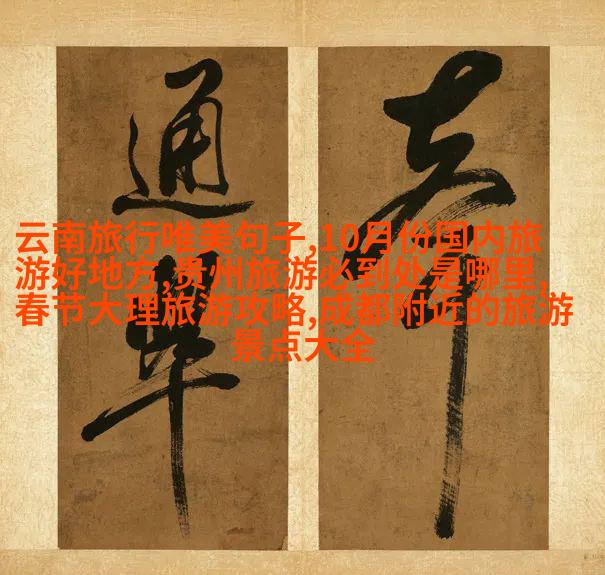 通
云南旅行唯美句子,10月份国内旅
游好地方,贵州旅游必到处是哪里,
春节大理旅游攻略,成都附近的旅游
景点大全